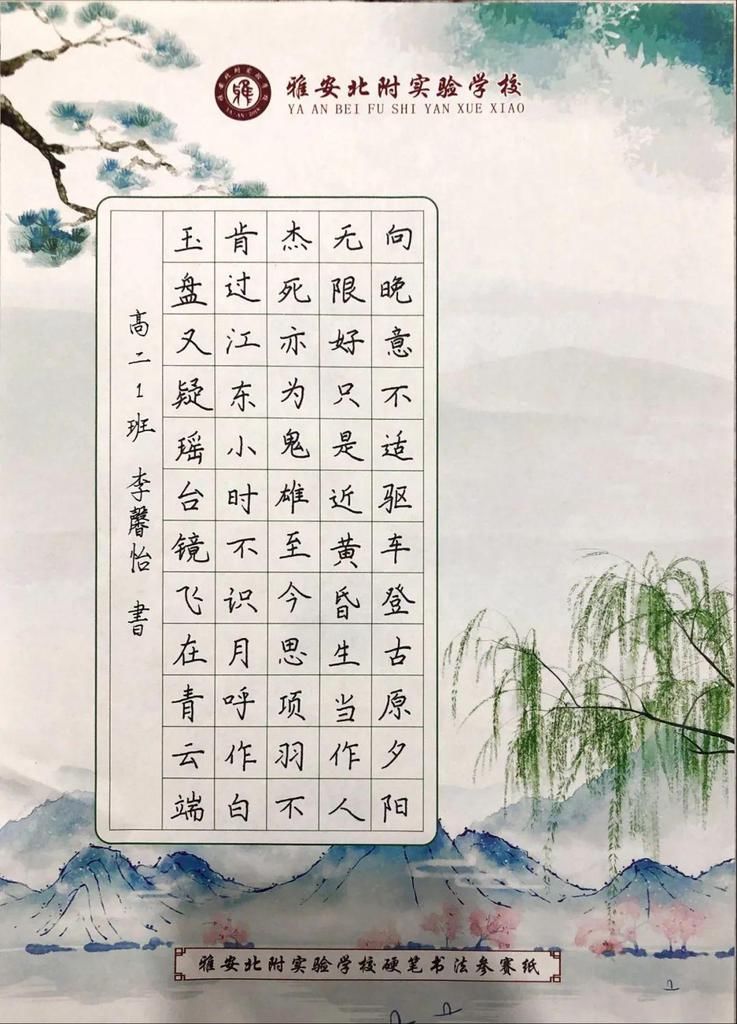 雅安北附实验学校
YA AN BEI FU SHI YAN XUE XIAO
向晚意不适驱车登古原夕阳
无限好只是近黄昏生当作人
杰死亦为鬼雄至今思项羽不
肯过江东小时不识月呼作白
玉盘又疑瑶台镜飞在青云端
高二1班 李馨怡 書
雅安北附实验学校硬笔书法参赛纸